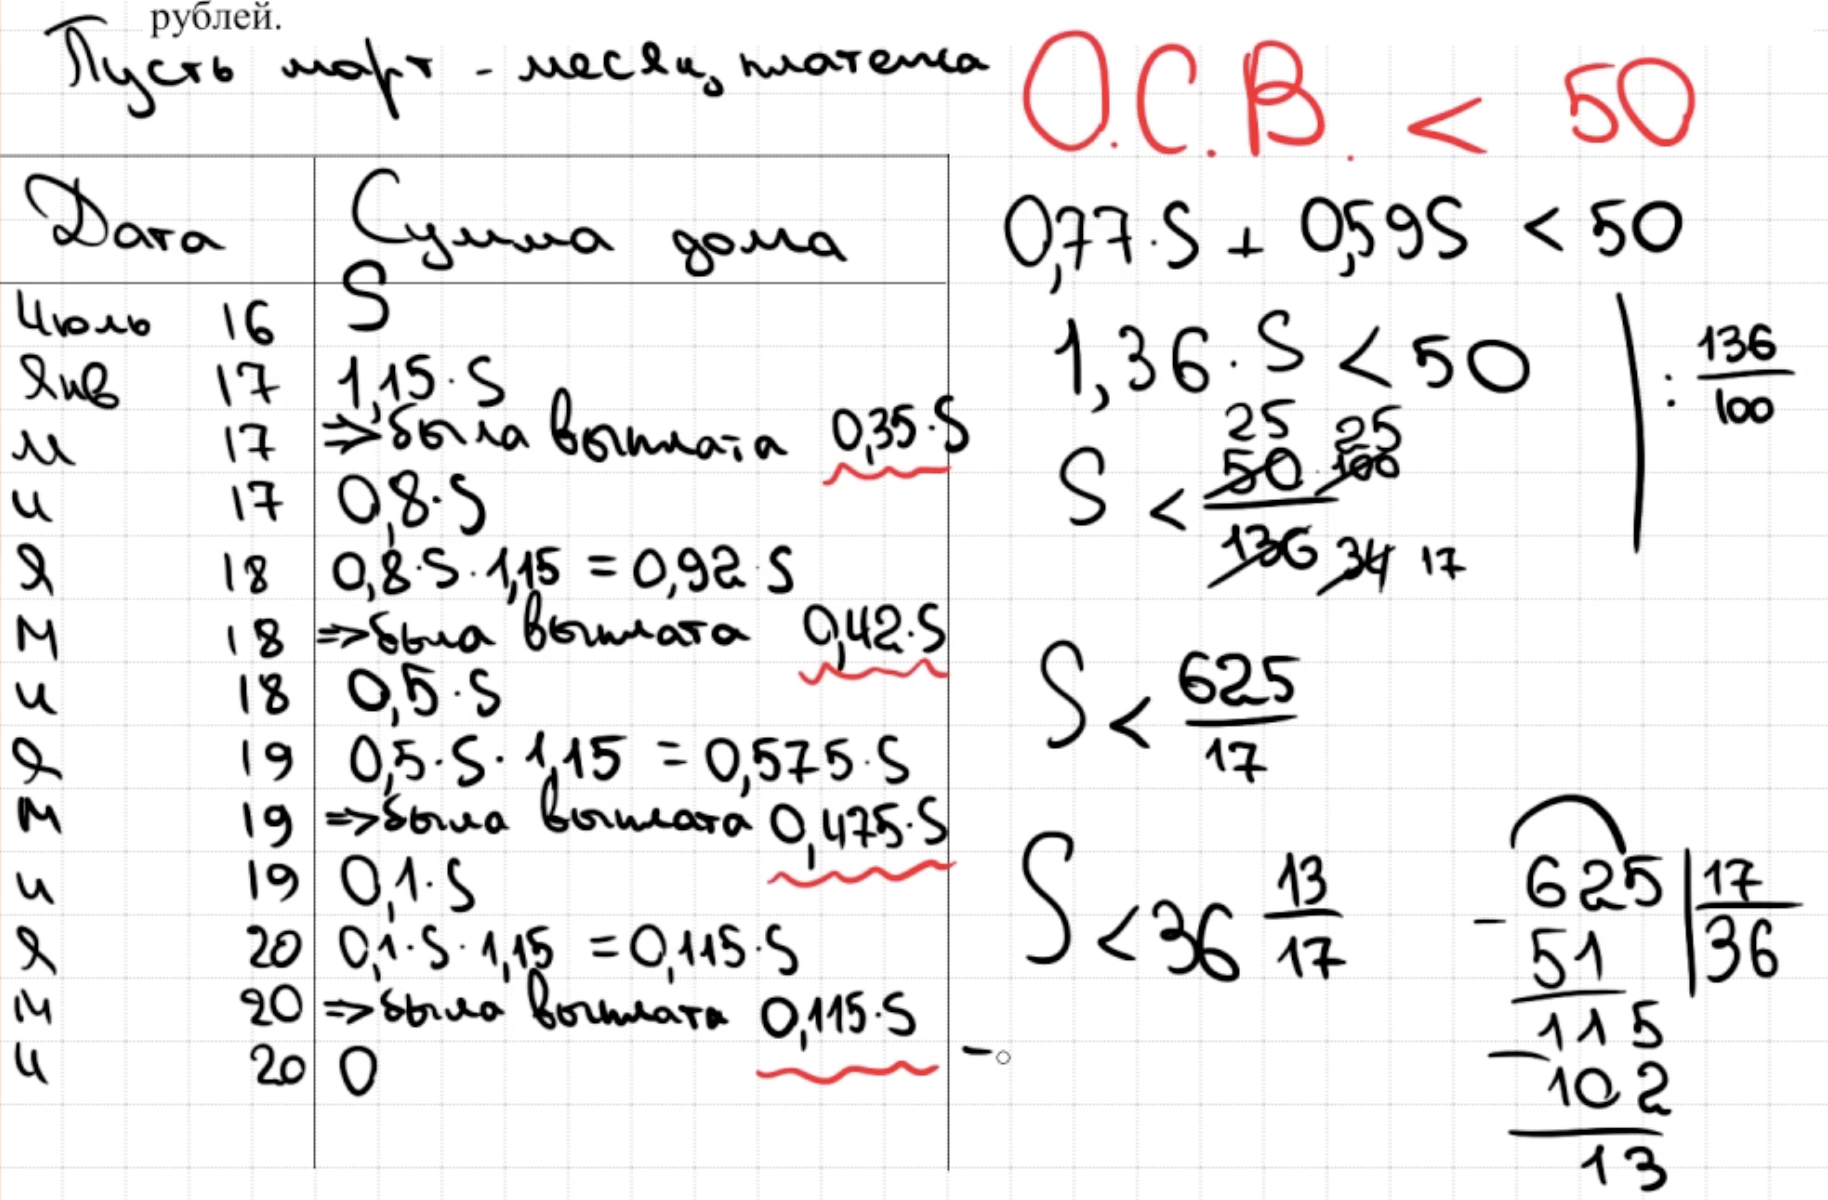 рублей.
Пусть март - месяц платежа
О.С.В. < 50
Дата Сумма долга
Июль 16 S
Янв 17 1,15·S
М 17 => была выплата 0,35·S
И 17 0,8·S
Я 18 0,8·S·1,15 = 0,92·S
М 18 => была выплата 0,42·S
И 18 0,5·S
Я 19 0,5·S·1,15 = 0,575·S
М 19 => была выплата 0,475·S
И 19 0,1·S
Я 20 0,1·S·1,15 = 0,115·S
М 20 => была выплата 0,115·S
И 20 0
0,77·S + 0,59S < 50
1,36·S < 50 | : 136/100
25 25
S < 50·100
136 34 17
S < 625/17
S < 36 13/17
- 625 | 17
51 36
115
- 102
13